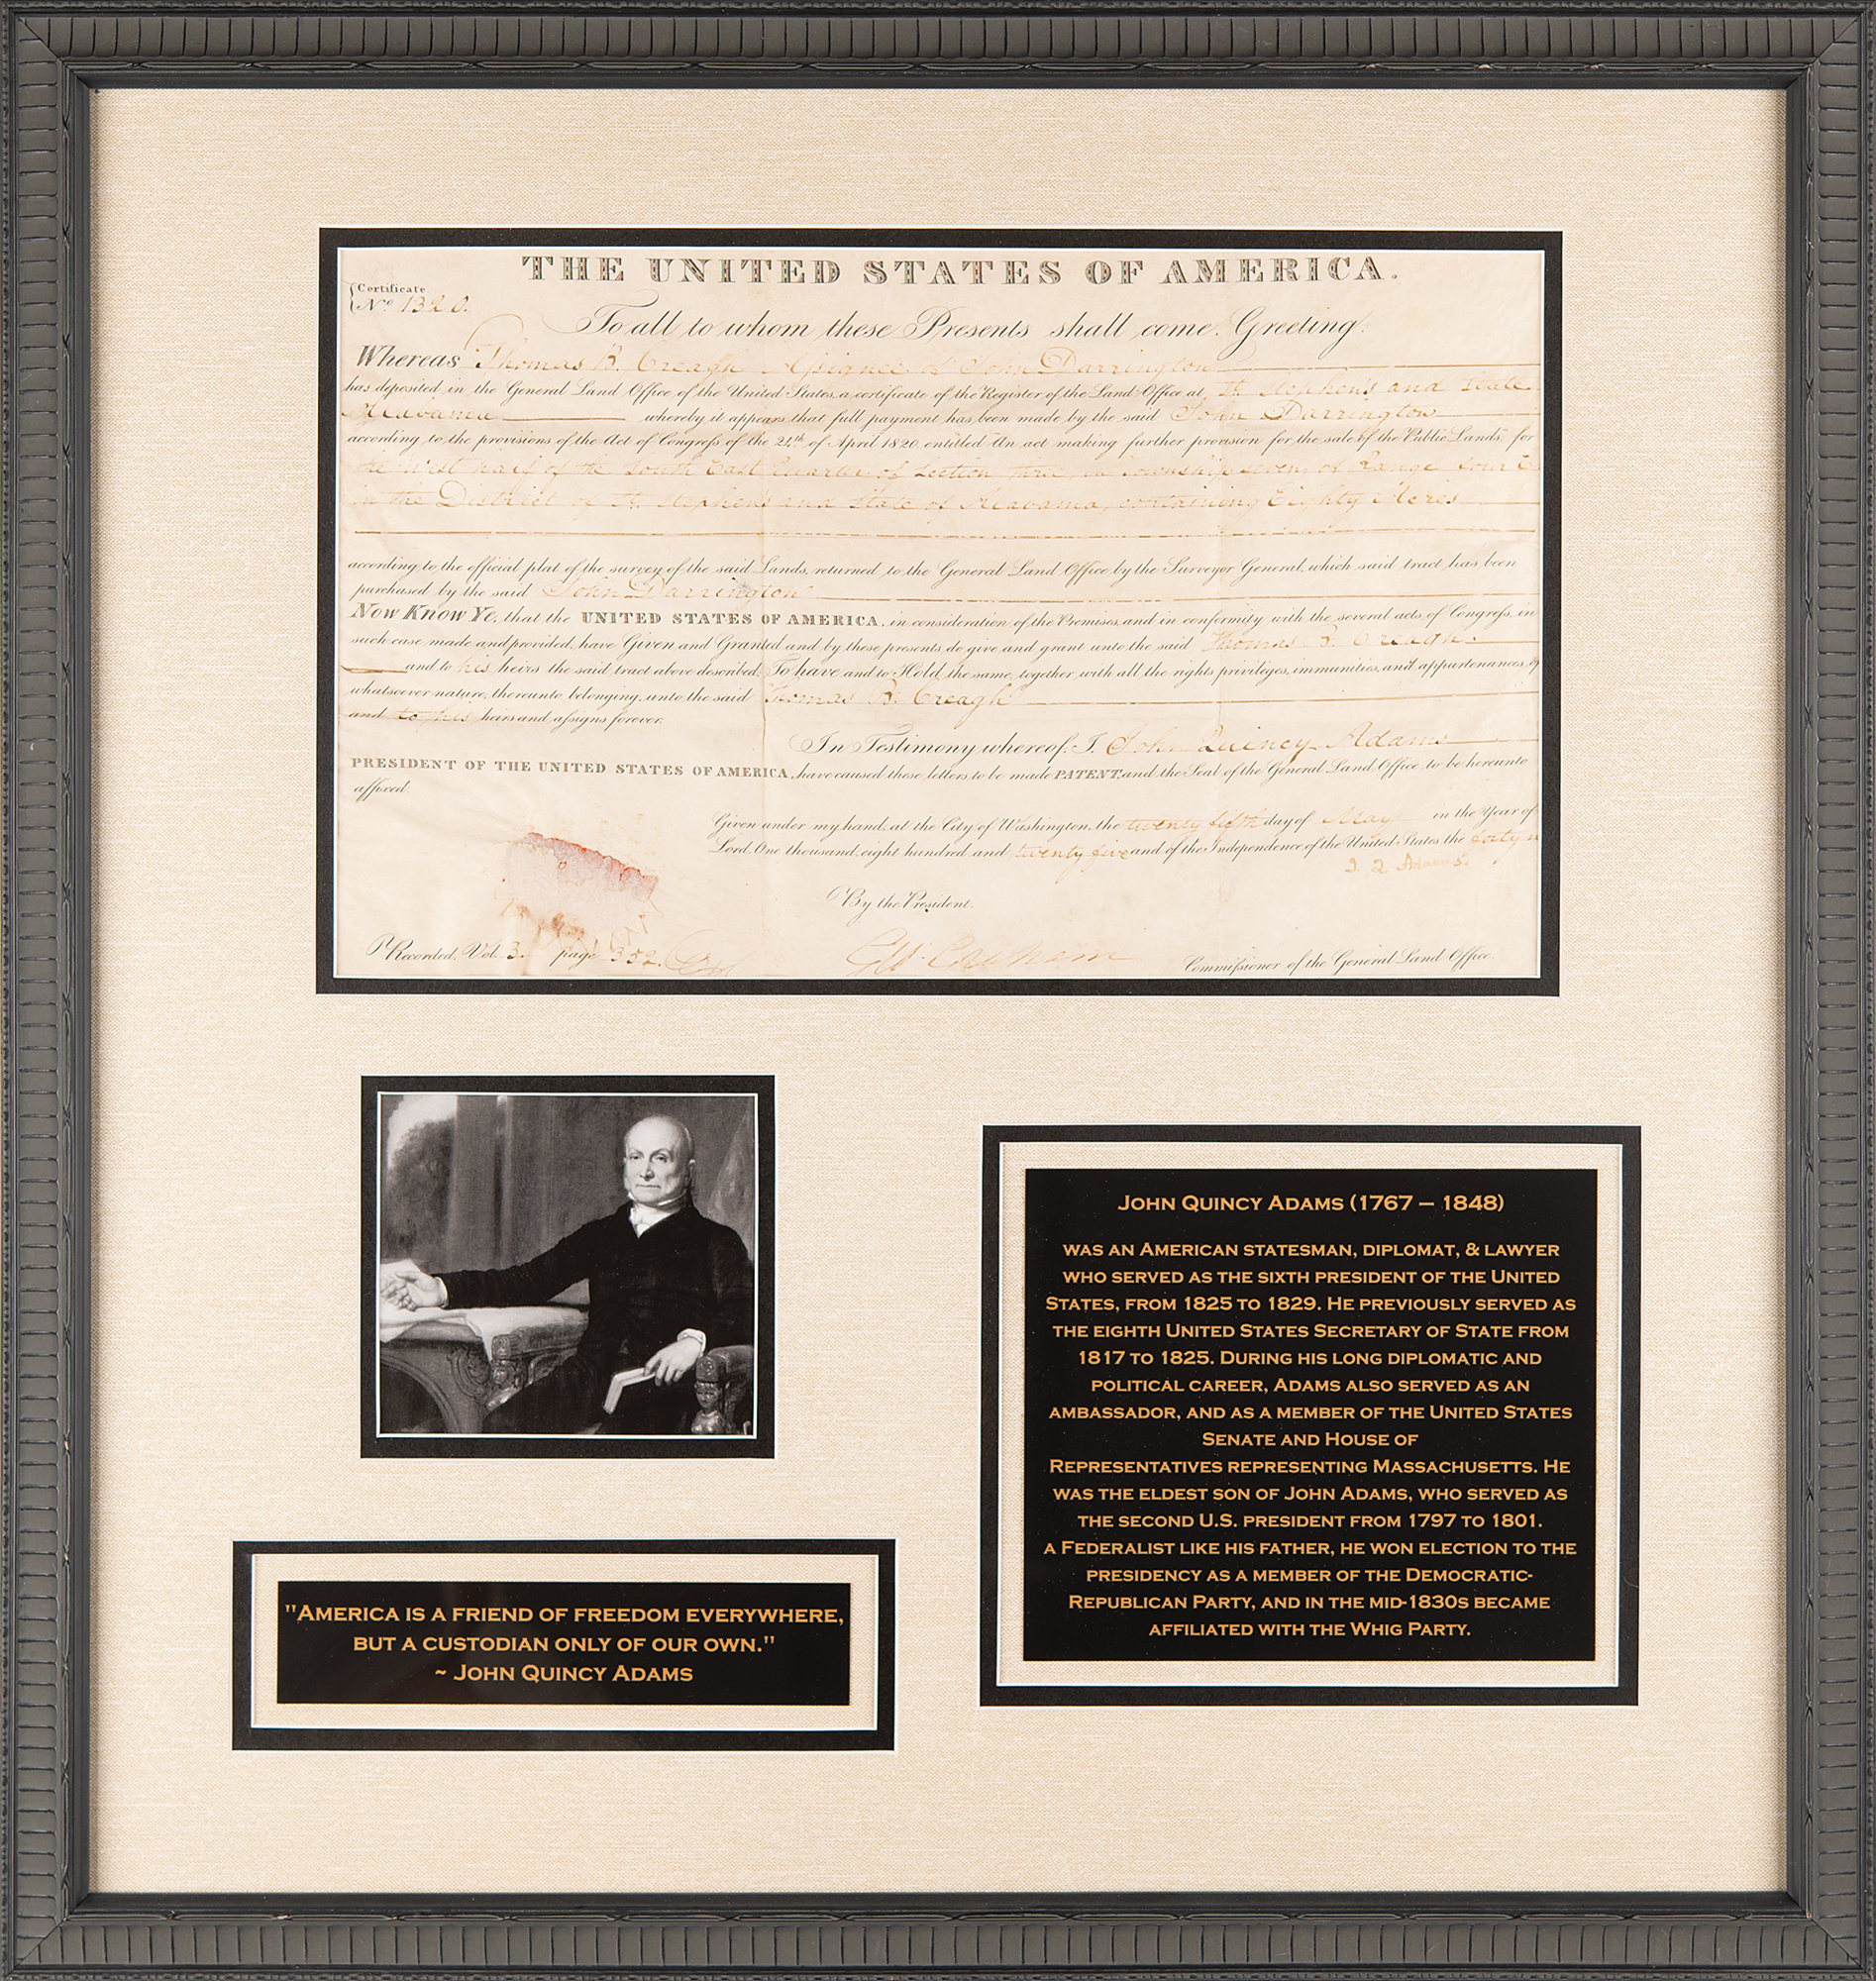 THE UNITED STATES OF AMERICA.
Certificate
No. 1320.
To all to whom these Presents shall come, Greeting.
Whereas Thomas B. Creagh Assignee of John Darrington
has deposited in the General Land Office of the United States, a certificate of the Register of the Land Office at St. Stephen's and State
Alabama whereby it appears that full payment has been made by the said John Darrington
according to the provisions of the Act of Congress of the 24th of April 1820, entitled An act making further provision for the sale of the Public Lands, for
the West half of the South East Quarter of Section three, in Township seven, of Range four E
in the District of St. Stephen's and State of Alabama, containing Eighty Acres
according to the official plat of the survey of the said Lands, returned to the General Land Office by the Surveyor General, which said tract has been
purchased by the said John Darrington
Now Know Ye, that the UNITED STATES OF AMERICA, in consideration of the Premises, and in conformity with the several acts of Congress, in
such case made and provided, have Given and Granted and by these presents do give and grant unto the said Thomas B. Creagh.
and to his heirs the said tract above described; To have and to Hold the same, together with all the rights privileges, immunities, and appurtenances of
whatsoever nature, thereunto belonging, unto the said Thomas B. Creagh
and to his heirs and assigns forever.
In Testimony whereof, I, John Quincy Adams
PRESIDENT OF THE UNITED STATES OF AMERICA, have caused these letters to be made PATENT, and the Seal of the General Land Office to be hereunto
affixed.
Given under my hand, at the City of Washington, the twenty fifth day of May in the Year of
Lord One thousand, eight hundred and twenty five and of the Independence of the United States the forty n
J. Q. Adams.
By the President.
Recorded, Vol. 3. page 352.
Commissioner of the General Land Office.
John Quincy Adams (1767 – 1848)
was an American statesman, diplomat, & lawyer
who served as the sixth president of the United
States, from 1825 to 1829. He previously served as
the eighth United States Secretary of State from
1817 to 1825. During his long diplomatic and
political career, Adams also served as an
ambassador, and as a member of the United States
Senate and House of
Representatives representing Massachusetts. He
was the eldest son of John Adams, who served as
the second U.S. president from 1797 to 1801.
a Federalist like his father, he won election to the
presidency as a member of the Democratic-
Republican Party, and in the mid-1830s became
affiliated with the Whig Party.
"America is a friend of freedom everywhere,
but a custodian only of our own."
~ John Quincy Adams